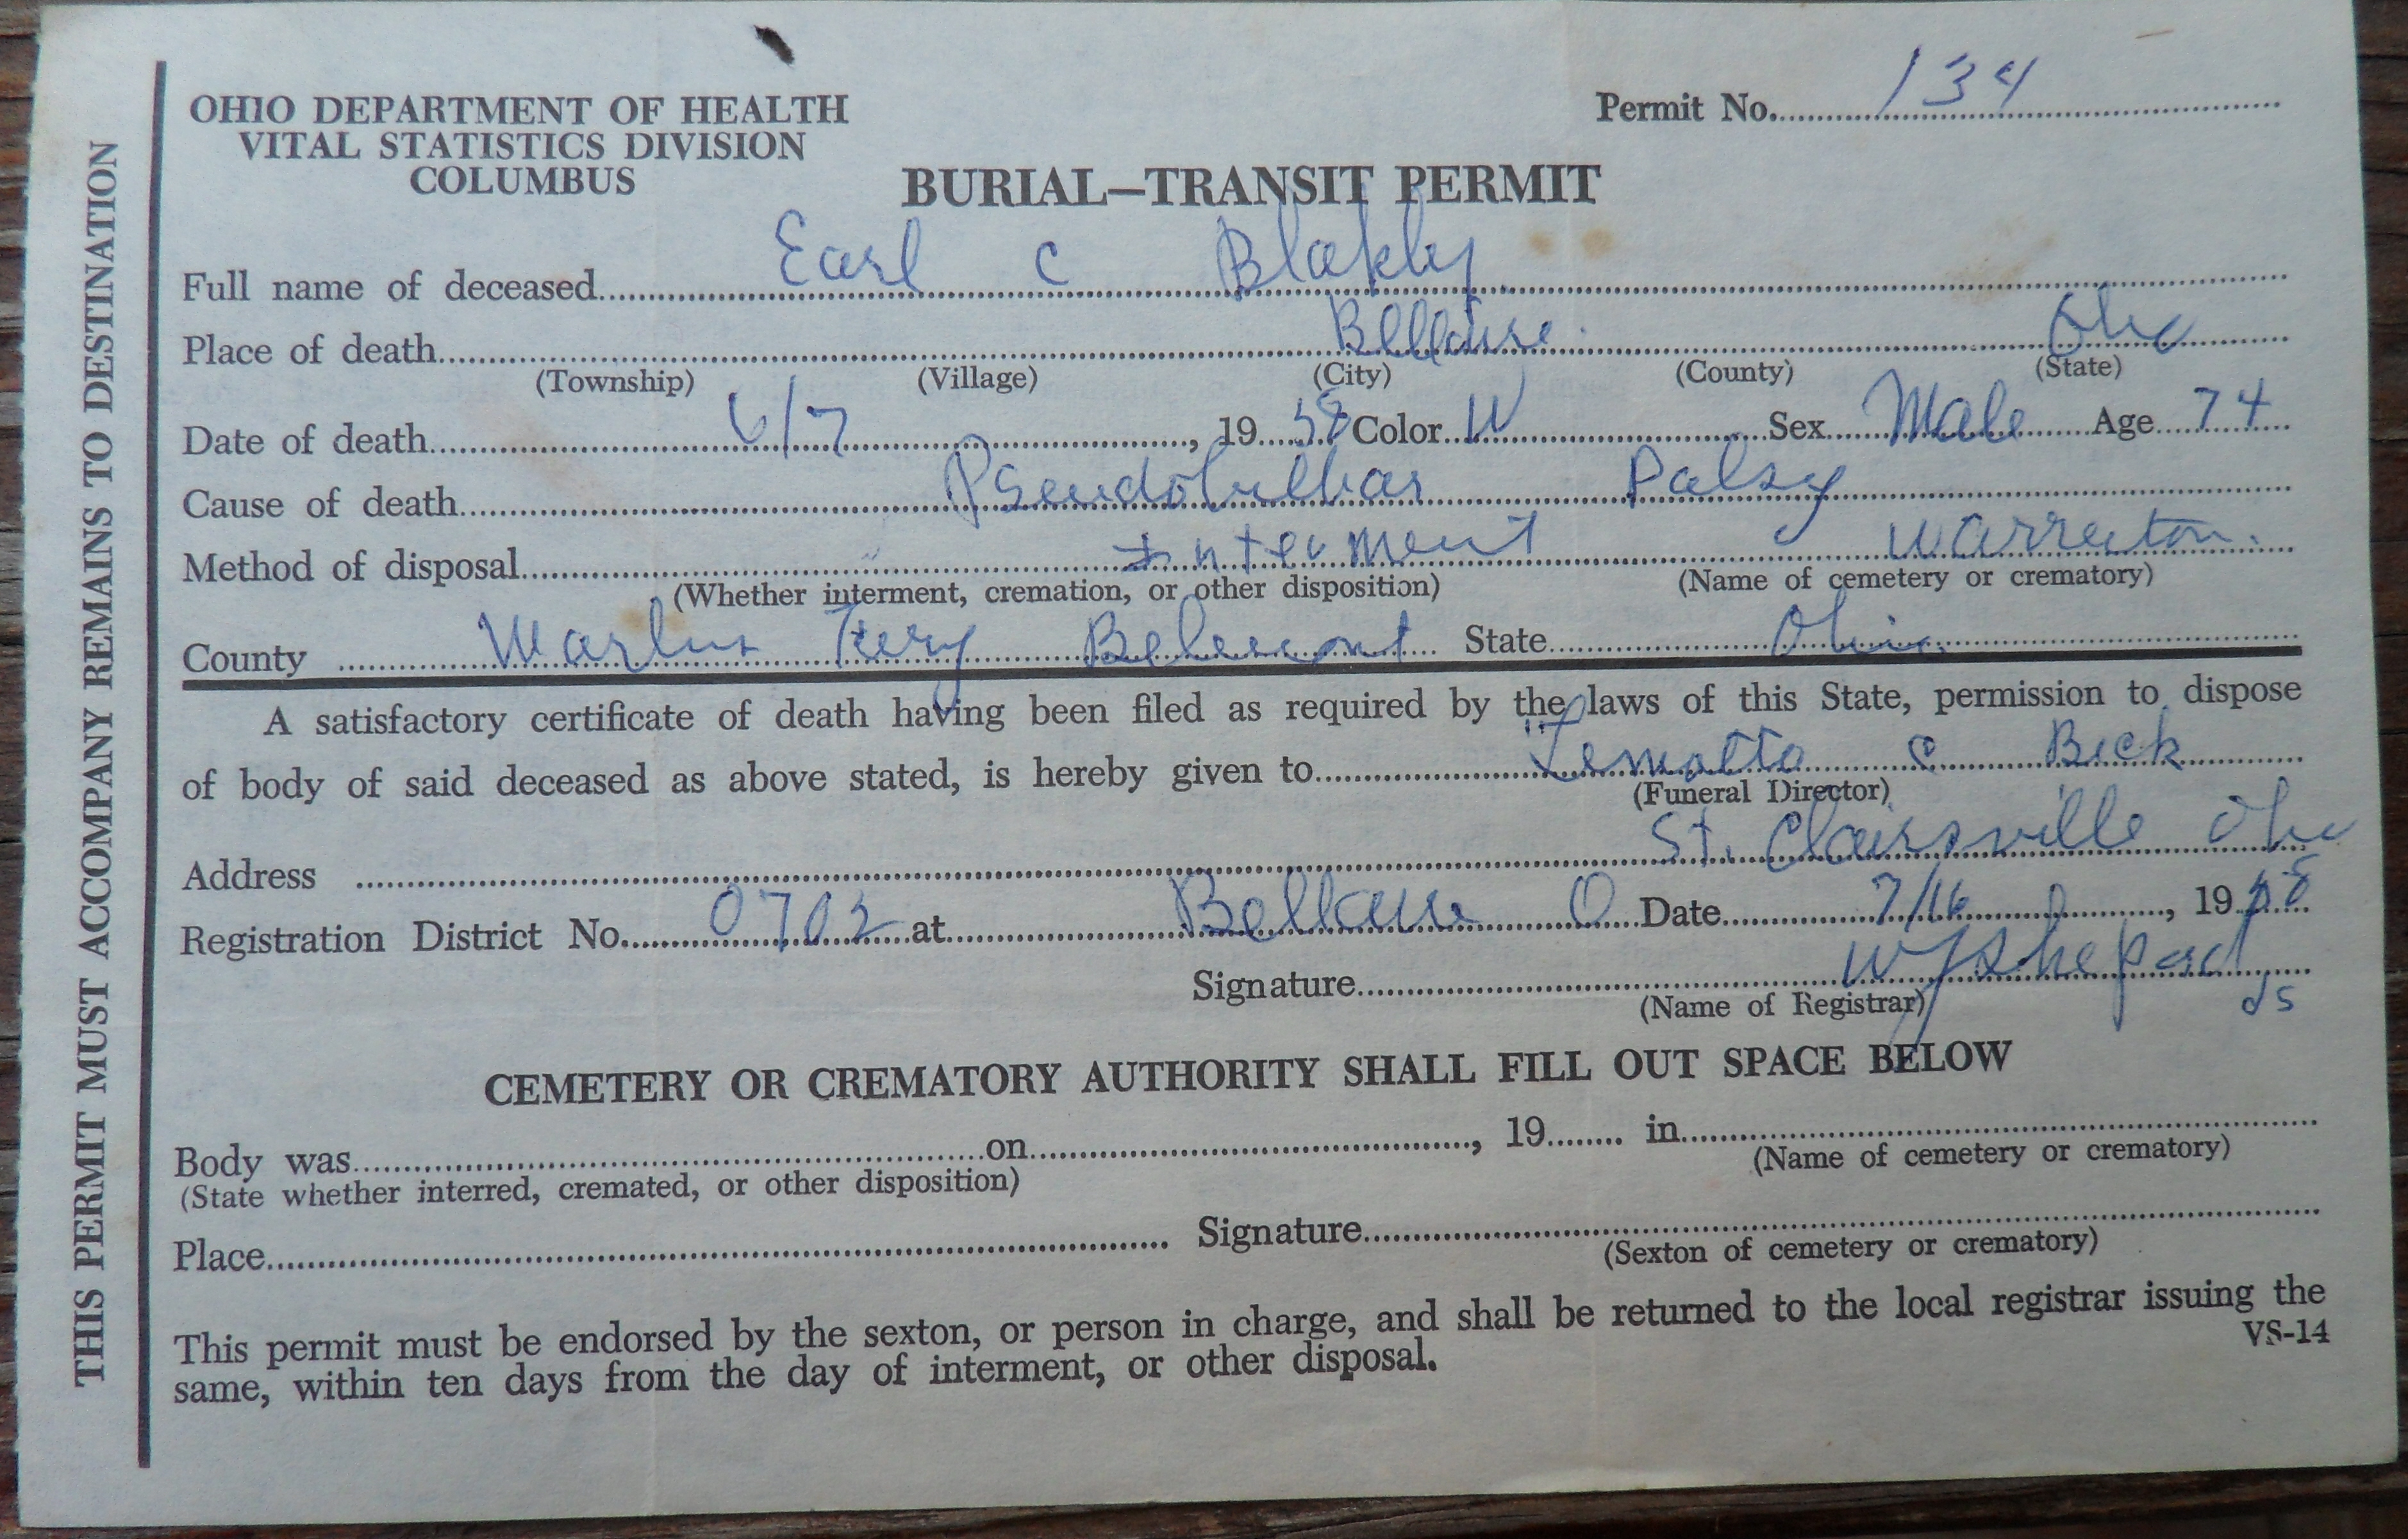 THIS PERMIT MUST ACCOMPANY REMAINS TO DESTINATION
OHIO DEPARTMENT OF HEALTH
VITAL STATISTICS DIVISION
COLUMBUS
Permit No. 134
BURIAL—TRANSIT PERMIT
Full name of deceased Earl C Blakly
Place of death Bellaire Ohio
(Township) (Village) (City) (County) (State)
Date of death 6/7, 19 58 Color W Sex Male Age 74
Cause of death Pseudobulbar Palsy
Method of disposal Interment Warrenton
(Whether interment, cremation, or other disposition) (Name of cemetery or crematory)
County Belmont State Ohio
A satisfactory certificate of death having been filed as required by the laws of this State, permission to dispose
of body of said deceased as above stated, is hereby given to C
(Funeral Director)
Address St. Clairsville Ohio
Registration District No. 0702 at Bellaire O Date 7/16, 19 58
Signature Shepard
(Name of Registrar) ds
CEMETERY OR CREMATORY AUTHORITY SHALL FILL OUT SPACE BELOW
Body was on , 19 in
(State whether interred, cremated, or other disposition) (Name of cemetery or crematory)
Place Signature
(Sexton of cemetery or crematory)
This permit must be endorsed by the sexton, or person in charge, and shall be returned to the local registrar issuing the
same, within ten days from the day of interment, or other disposal.
VS-14